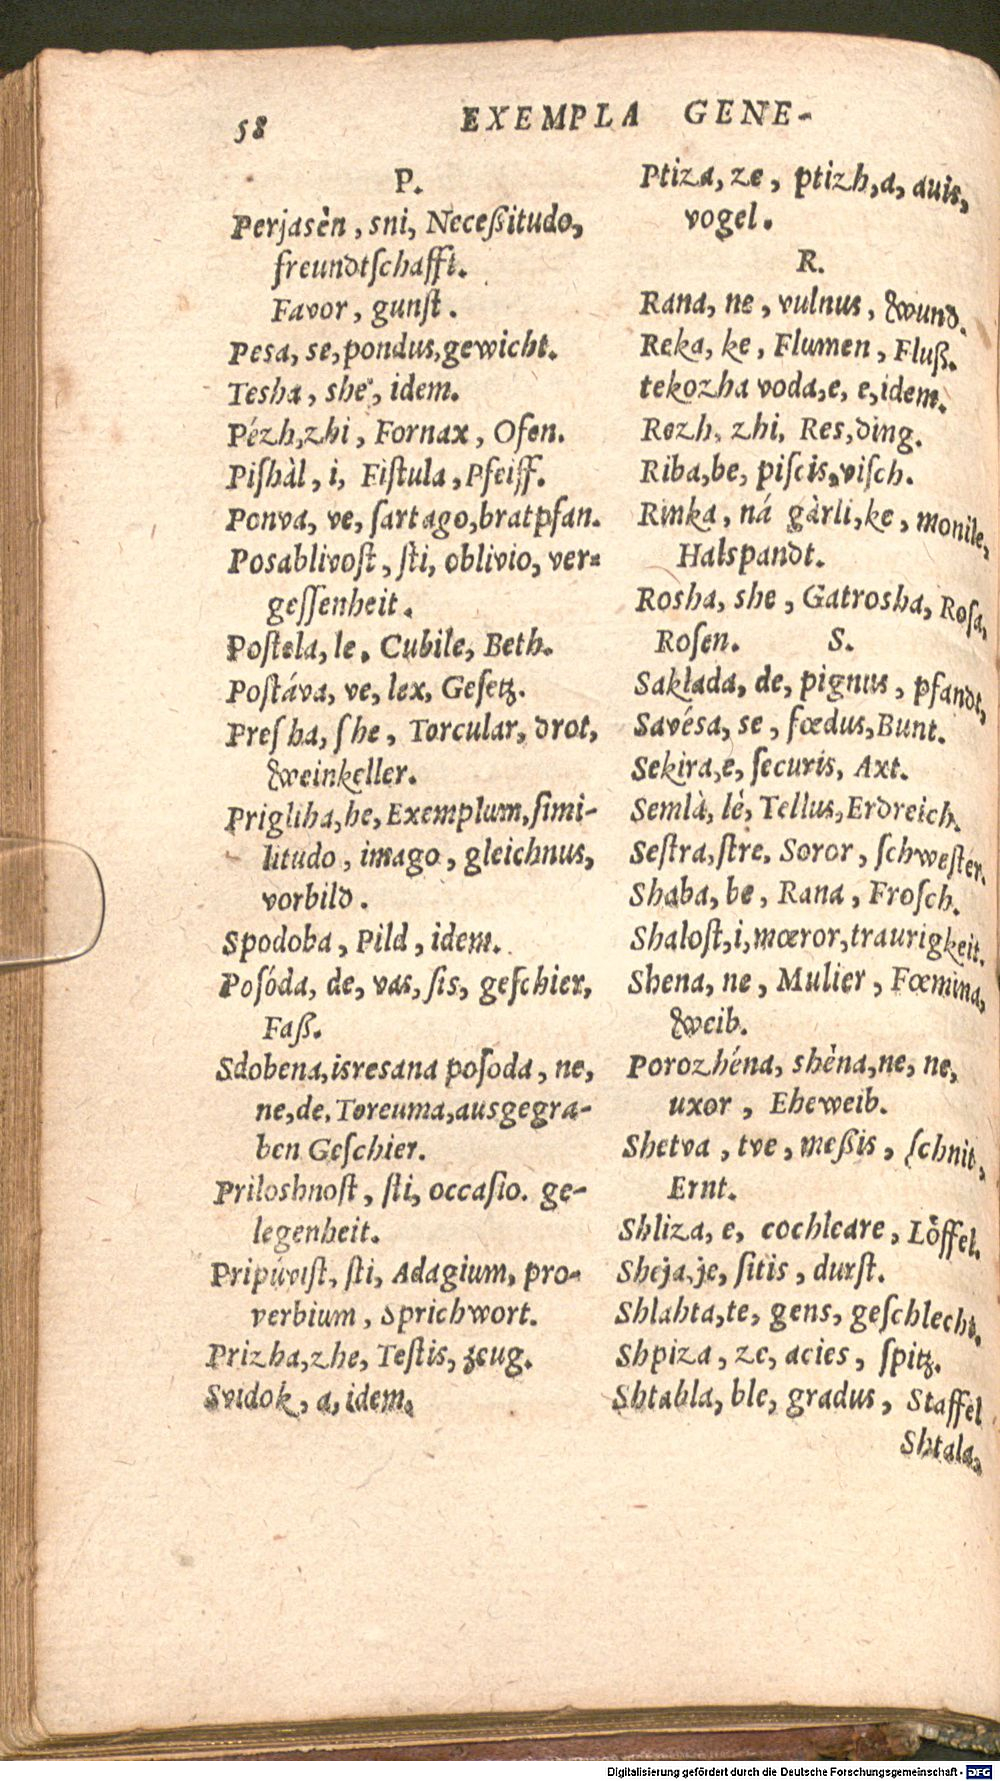 58
EXEMPLA GENE-
P.
Perjasèn, sni, Neceßitudo,
freundtſchafft.
Favor, gunſt.
Pesa, se, pondus, gewicht.
Tesha, she, idem.
Pézh, zhi, Fornax, Ofen.
Piſhàl, i, Fiſtula, Pfeiff.
Ponva, ve, ſartago, bratpfan.
Posablivoſt, ſti, oblivio, ver-
geſſenheit.
Poſtela, le. Cubile, Beth.
Poſtáva, ve, lex, Geſetz.
Preſha, ſhe, Torcular, drot,
weinkeller.
Prigliha, he, Exemplum, ſimi-
litudo, imago, gleichnus,
vorbild.
Spodoba, Pild, idem.
Poſóda, de, vas, ſis, geſchier,
Faß.
Sdobena, isresana poſoda, ne,
ne, de. Toreuma, ausgegra-
ben Geſchier.
Priloshnoſt, ſti, occaſio. ge-
legenheit.
Pripúviſt, ſti, Adagium, pro-
verbium, Sprichwort.
Prizha, zhe, Teſtis, zeug.
Svidok, a, idem.
Ptiza, ze, ptizh, a, auis,
vogel.
R.
Rana, ne, vulnus, wund.
Reka, ke, Flumen, Fluß.
tekozha voda, e, e, idem.
Rezh, zhi, Res, ding.
Riba, be, piſcis, viſch.
Rinka, ná gàrli, ke, monile,
Halspandt.
Rosha, she, Gatrosha, Roſa,
Roſen. S.
Saklada, de, pignus, pfandt,
Savésa, se, fœdus, Bunt.
Sekira, e, ſecuris, Axt.
Semlà, lè, Tellus, Erdreich.
Seſtra, ſtre. Soror, ſchweſter.
Shaba, be, Rana, Froſch.
Shaloſt, i, mœror, traurigkeit.
Shena, ne, Mulier, Fœmina,
weib.
Porozhéna, shèna, ne, ne,
uxor, Eheweib.
Shetva, tve, meßis, ſchnit,
Ernt.
Shliza, e, cochleare, Löffel.
Sheja, je, ſitis, durſt.
Shlahta, te, gens, geſchlecht.
Shpiza, ze, acies, ſpitz.
Shtabla, ble, gradus, Staffel
Shtala,
Digitalisierung gefördert durch die Deutsche Forschungsgemeinschaft - DFG